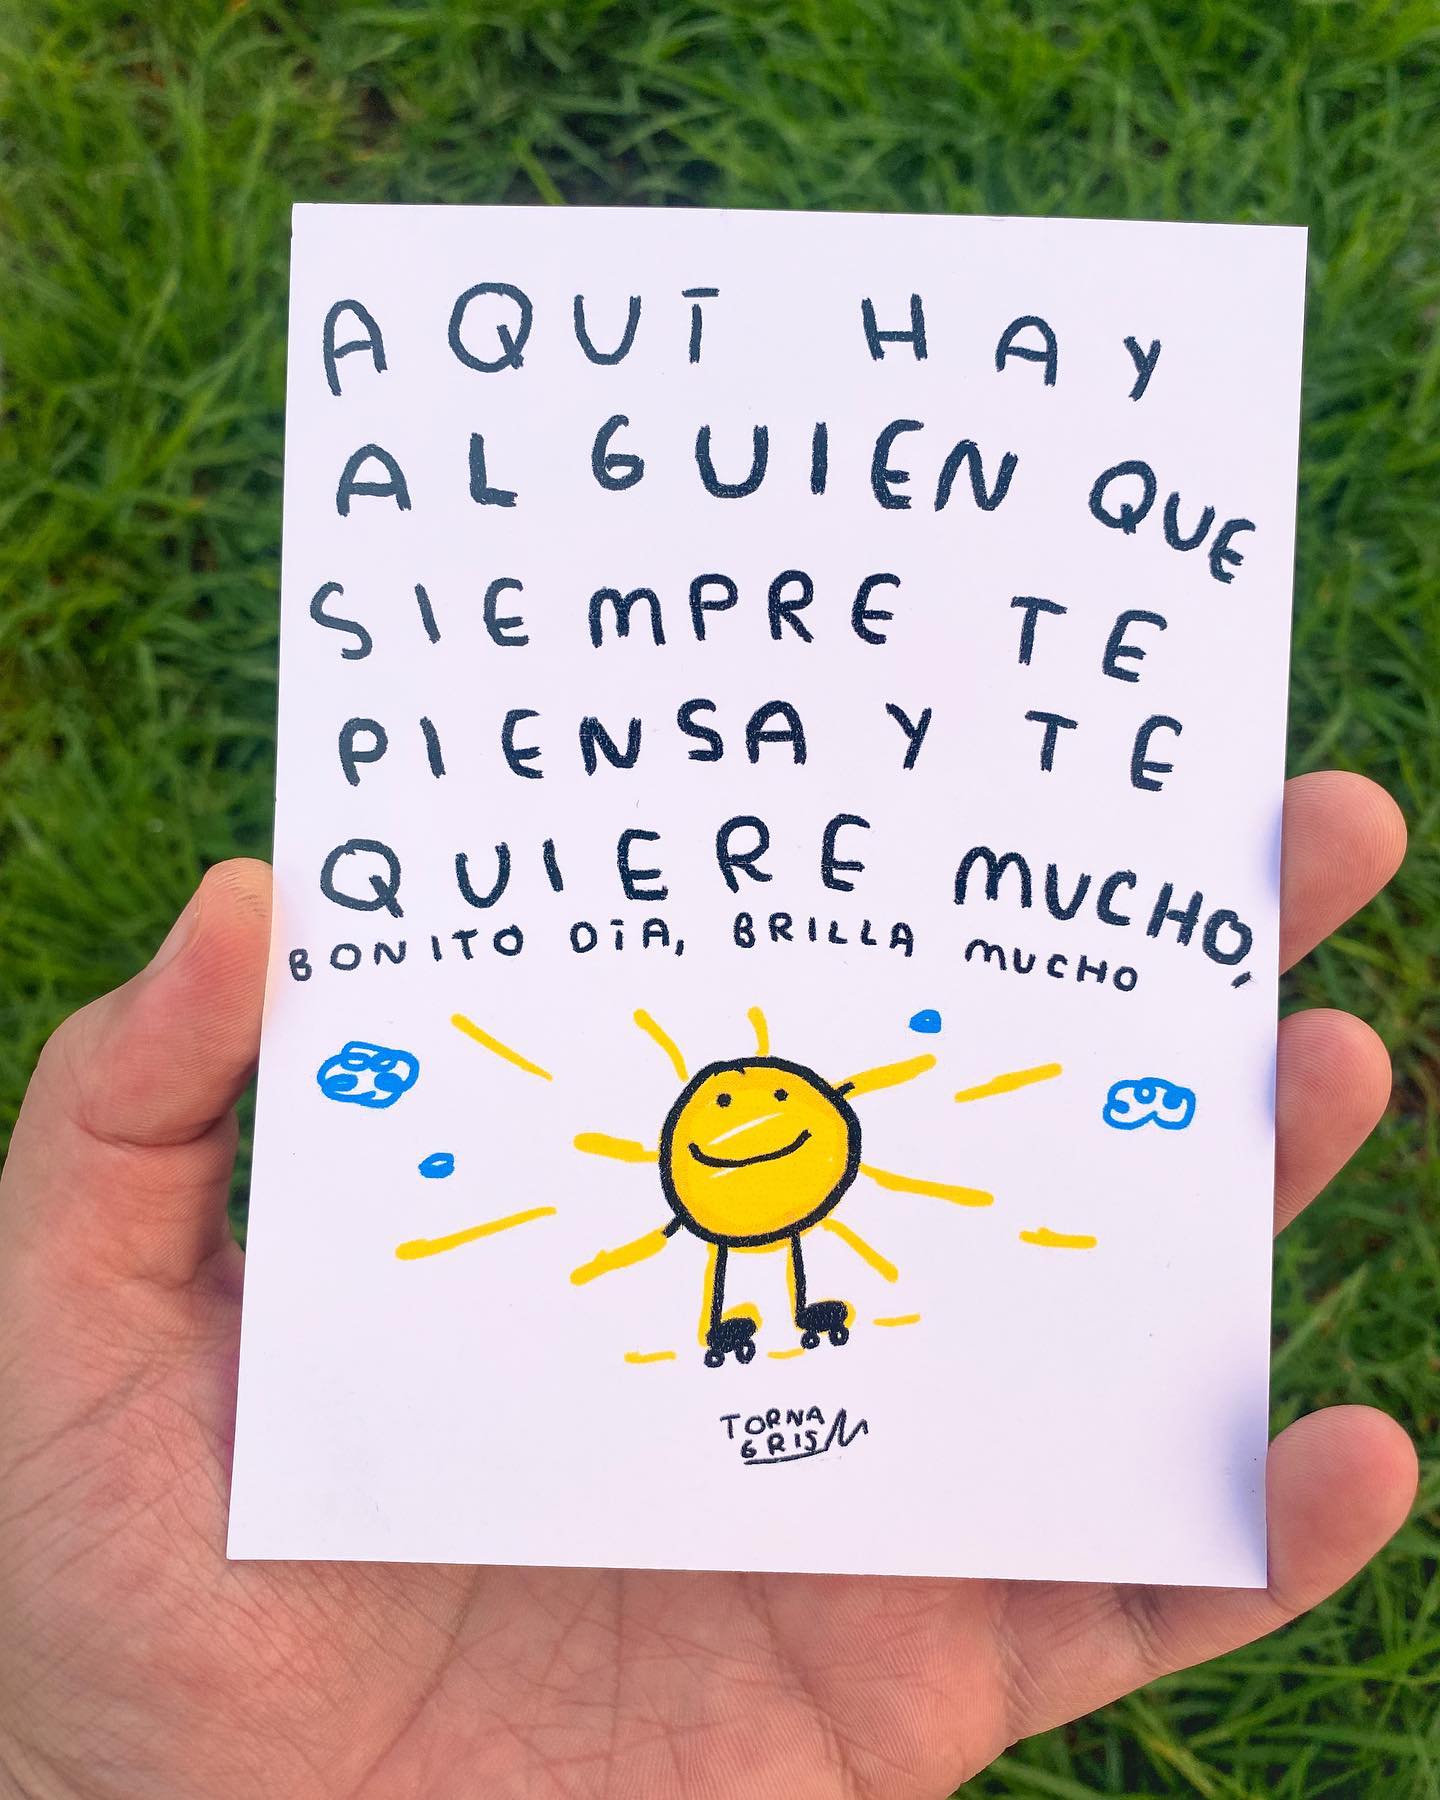 AQUÍ HAY
ALGUIEN QUE
SIEMPRE TE
PIENSA Y TE
QUIERE MUCHO,
BONITO DÍA, BRILLA MUCHO
TORNA
GRIS